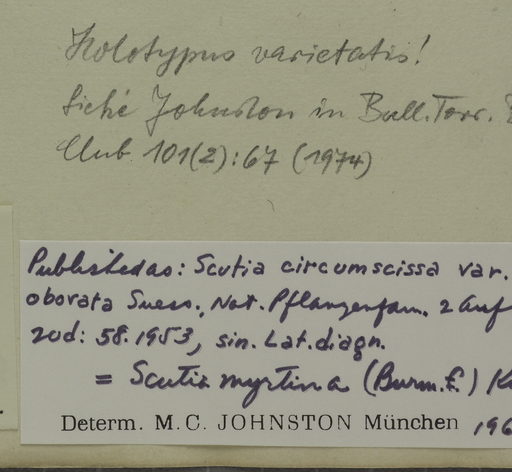 Holotypus varietatis!
Siehe Johnston in Bull. Torr.
Club 101(2):67 (1974)
Published as: Scutia circumscissa var.
obovata Suess., Nat. Pflanzenfam. 2 Aufl
20d: 58. 1953, sin. Lat. diagn.
= Scutia myrtina (Burm. f.) Ku
Determ. M. C. JOHNSTON München 196